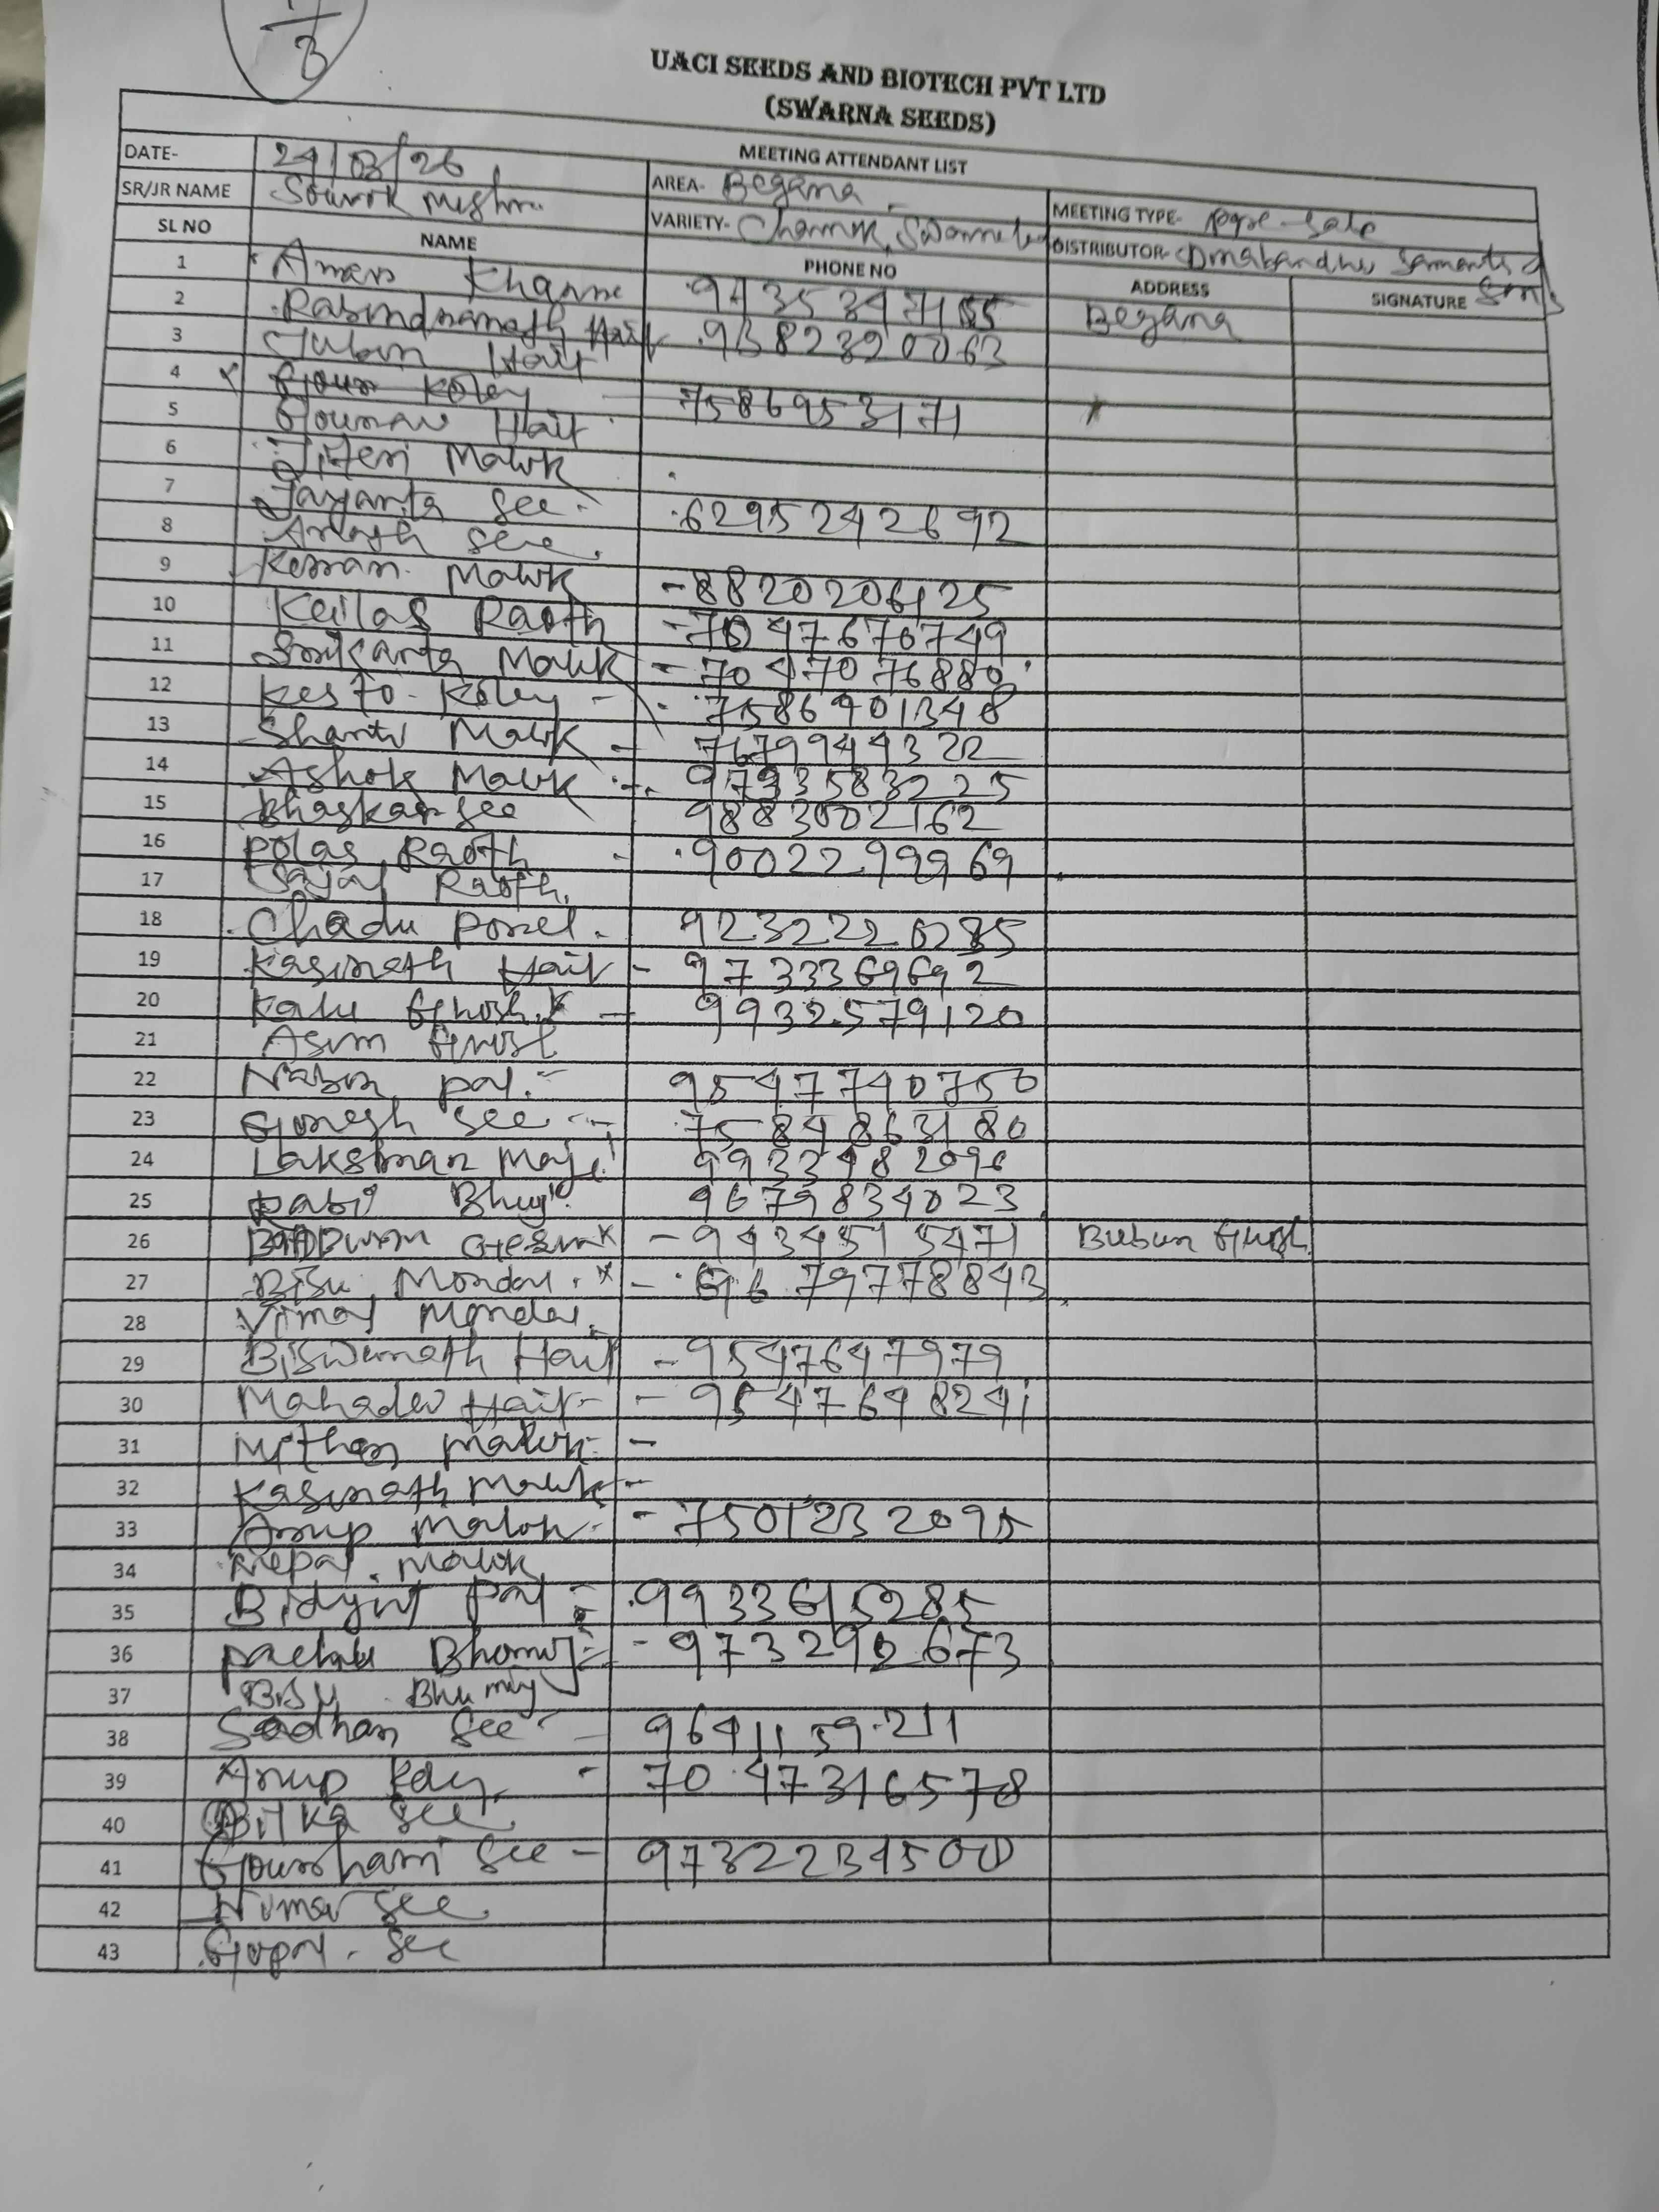 1/3
UACI SEEDS AND BIOTECH PVT LTD
(SWARNA SEEDS)
MEETING ATTENDANT LIST
DATE- 24/03/26 AREA- Begana MEETING TYPE- pre-sale
SR/JR NAME Sourok Mishra VARIETY- Chamok, DISTRIBUTOR- Samanta & Sons
SL NO NAME PHONE NO ADDRESS SIGNATURE
1 Khanna Begana
2 Rabindranath Hait 9382320063
3 Hait
4 Gour Koley 7586953171
5 Hait
6 Jiten Malik
7 Jayanta See 6295242692
8 See
9 Malik - 8820206125
10 Kailas Raoth - 7047676749
11 Srikanta Malik - 7047076880
12 Kesto Koley - 7586901348
13 Shanti Malik - 7679944322
14 Ashok Malik 9733583225
15 Bhaskar See 9883002162
16 Polas Raoth - 9002299969
17 Raoth
18 Chadu Porel 9232226285
19 Kasinath Hait - 9733369692
20 Kalu Ghosh - 9932579120
21 Asim Ghosh
22 Nabin pal 9547740750
23 Gonesh See 7584863180
24 Lakshman Maji 9933482096
25 Rabi Bhuji 9679834023
26 - 9434515471 Bubun Ghosh
27 Bisu Mondal - 9679778843
28 Vimal Mondal
29 Biswanath Hait - 9547647979
30 Mahadev Hait - 9547648241
31 Mithan Malik -
32 Kasinath Malik -
33 Arup Malik - 7501232095
34 Nepal Malik
35 Bidyut Pal 9933615285
36 - 973292673
37 Bhumij
38 Sadhan See - 9641159211
39 Arup - 7047316578
40 See
41 Gourhari See - 9732234500
42 Nimai See
43 Gopal See